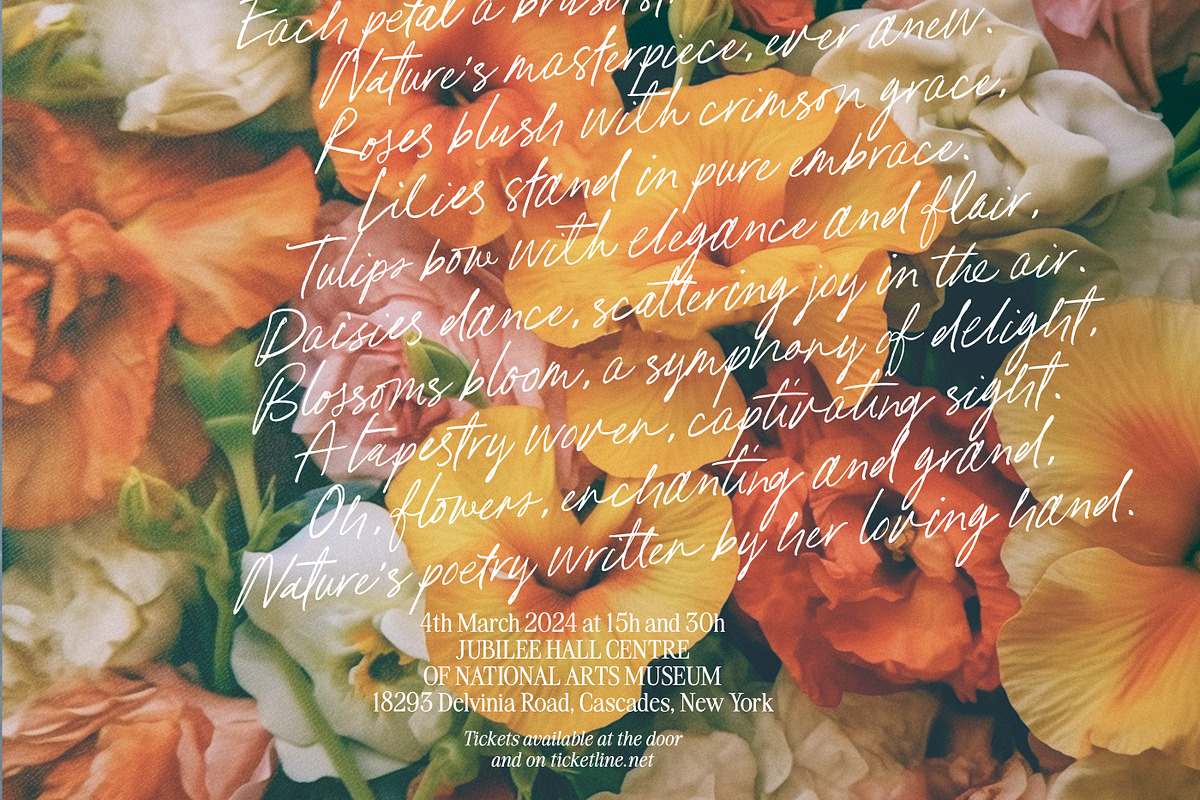 Each petal a
Nature's masterpiece, ever anew.
Roses blush with crimson grace,
Lilies stand in pure embrace.
Tulips bow with elegance and flair,
Daisies dance, scattering joy in the air.
Blossoms bloom, a symphony of delight,
A tapestry woven, captivating sight.
Oh, flowers, enchanting and grand,
Nature's poetry written by her loving hand.
4th March 2024 at 15h and 30h
JUBILEE HALL CENTRE
OF NATIONAL ARTS MUSEUM
18293 Delvinia Road, Cascades, New York
Tickets available at the door
and on ticketline.net